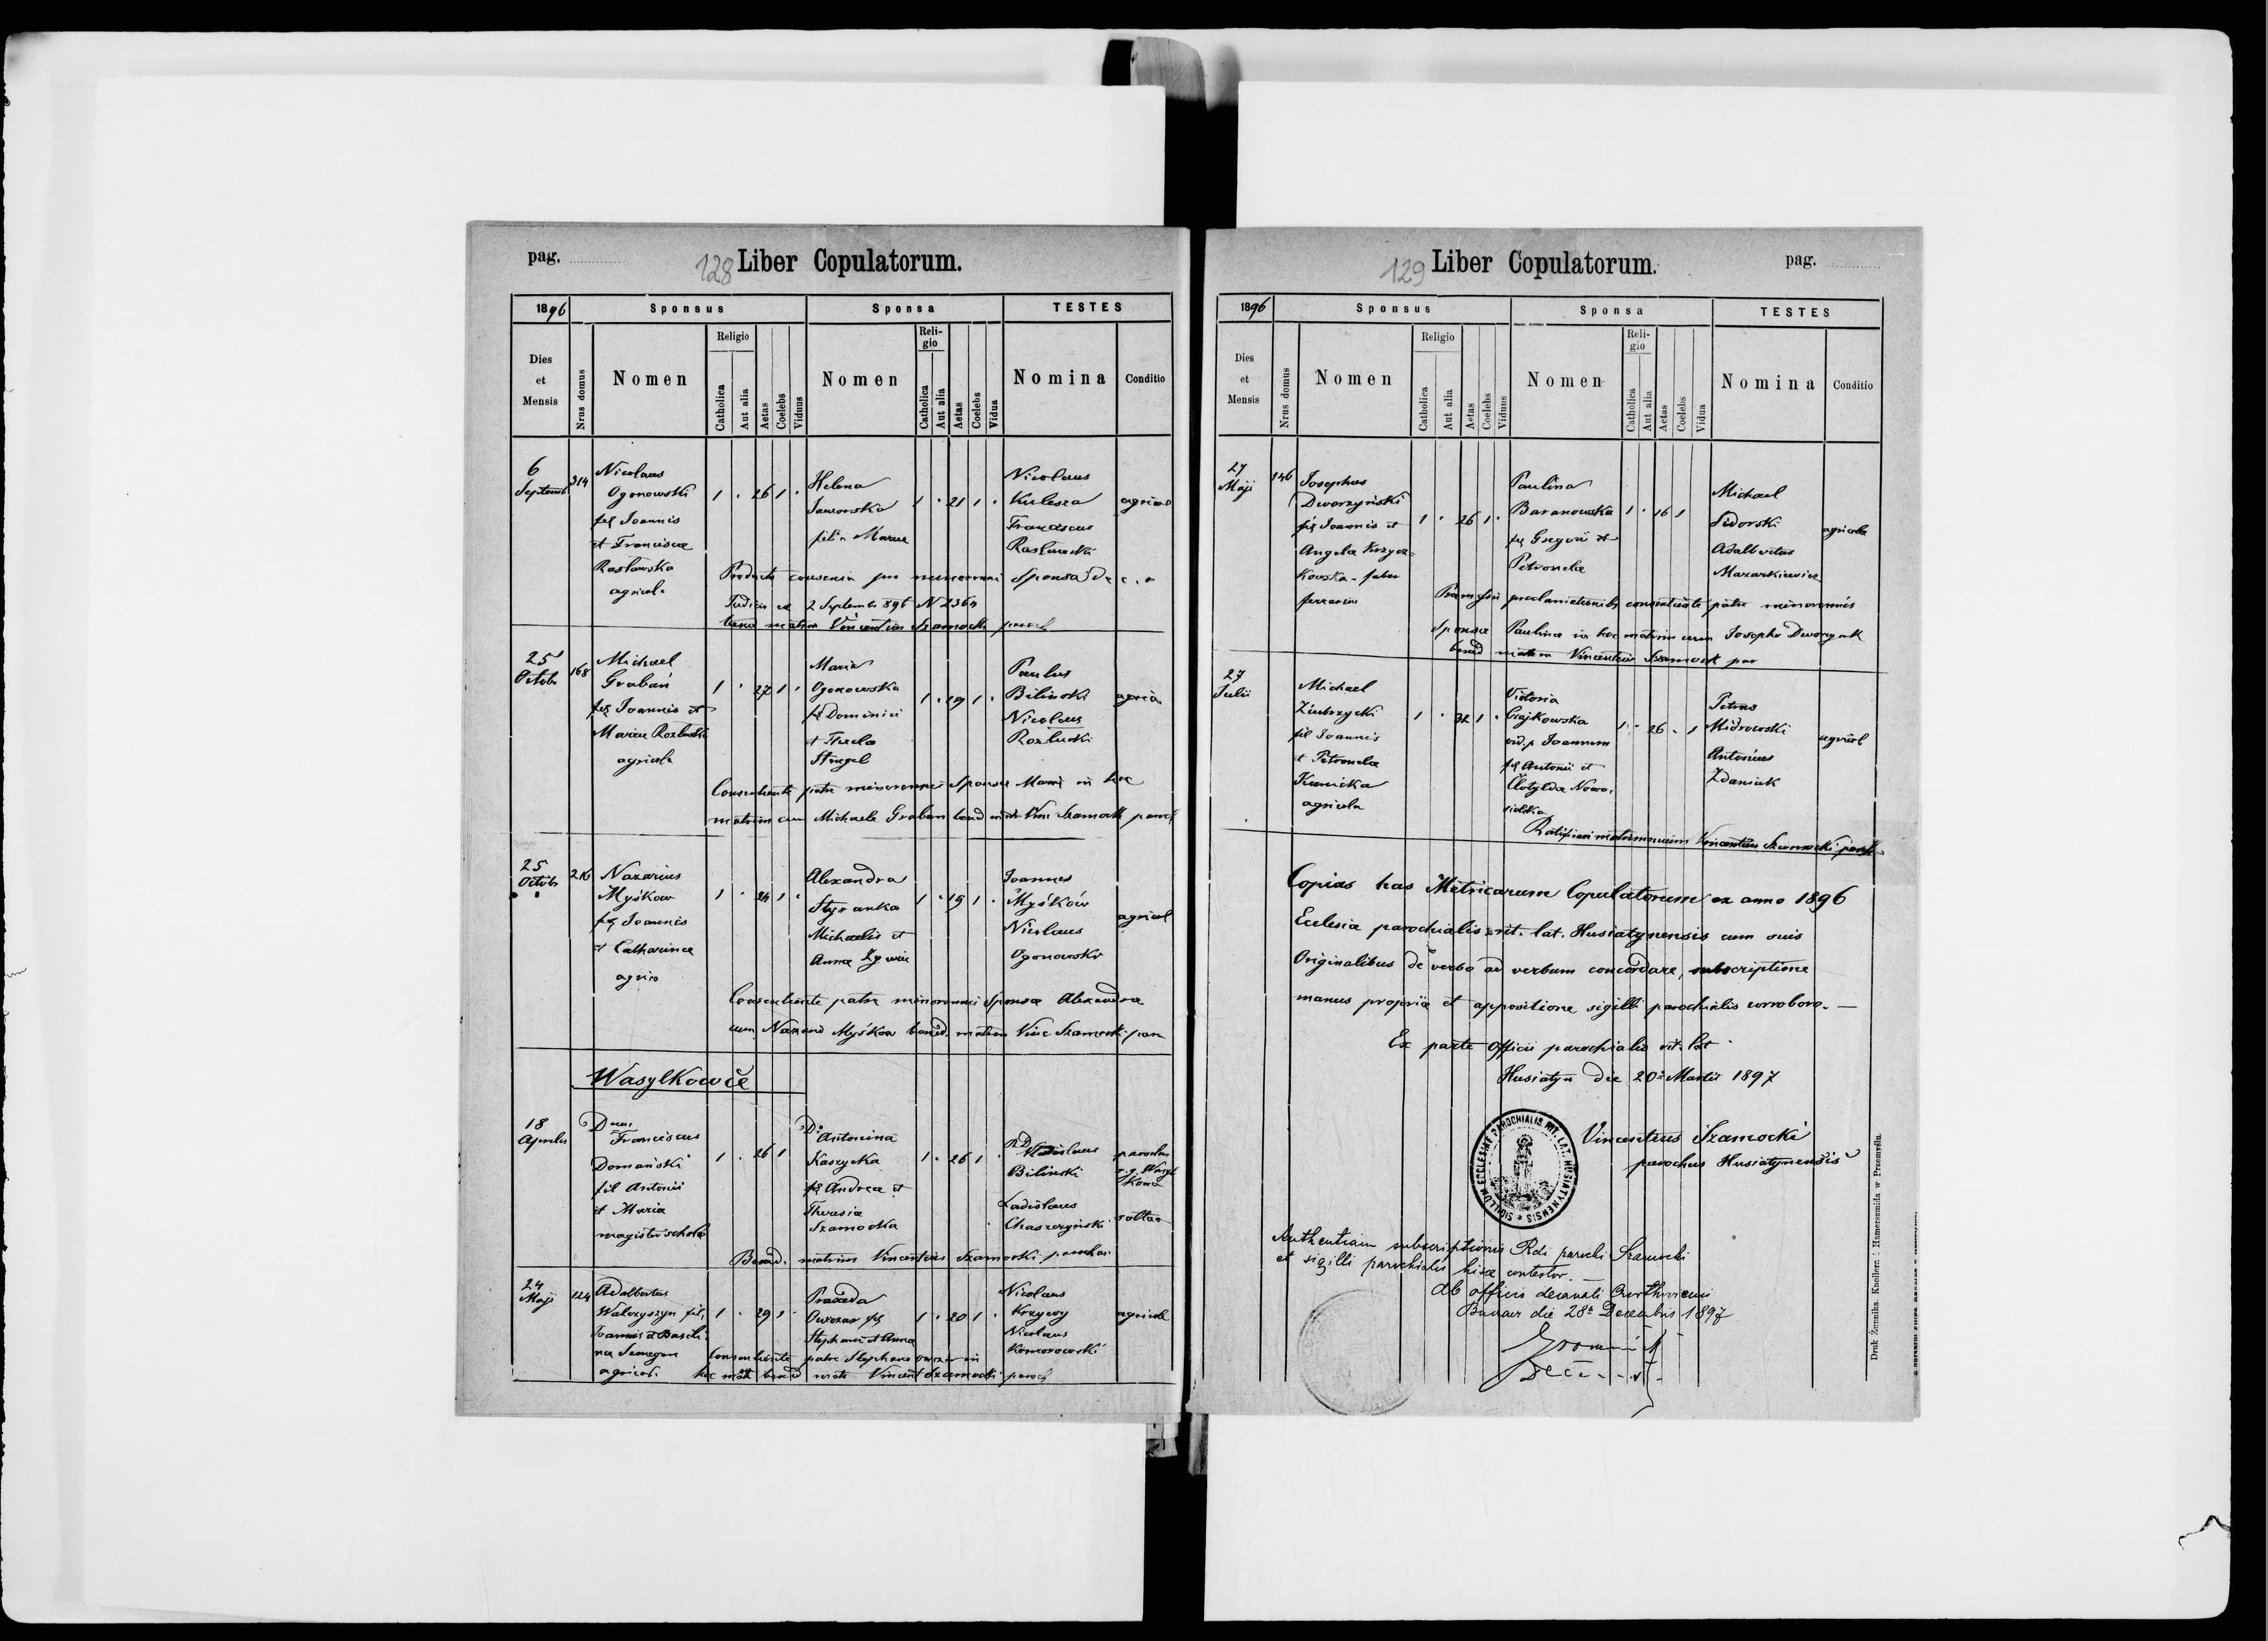 pag.
128 Liber Copulatorum.
1896 Sponsus Sponsa TESTES
Dies et Mensis
Nrus domus
Nomen
Religio
Catholica
Aut alia
Aetas
Coelebs
Viduus
Nomen
Reli-
gio
Catholica
Aut alia
Aetas
Coelebs
Vidua
Nomina
Conditio
6
Septemb
314
Nicolaus
Ogonowski
fil Joannis
et Franciscae
Rasławska
agricola
1 . 26 1 .
Helena
Jaworska
filia Mariae
1 . 21 1 .
Nicolaus
Kulesza
Franciscus
agricol
Producto consensu pro minorenni Sponsa
2 Septemb 896 N
Vincentius Szamocki paroch
25
Octob
168
Michael
Graban
fil Joannis et
Mariae
agricola
1 . 27 1 .
Maria
Ogonowska
fil Dominici
et Thecla
Strugel
1 . 19 1 .
Paulus
Bilinski
Nicolaus
Rozłucki
agrico
Consentiente patre minorennis Sponsae Maria in hoc
matrim cum Michaele Graban bened matr Vinc Szamocki paroch
25
Octob
216
Nazarius
Myśkow
fil Joannis
et Catharinae
agrico
1 . 24 1 .
Alexandra
Michaelis et
Annae
1 . 19 1 .
Joannes
Myśków
Nicolaus
Ogonowski
agricol
Consentiente patre minorennis Sponsae Alexandrae
cum Nazario Myśkow bened. matrim Vinc Szamocki par
Wasylkowce
18
Aprilis
Dnus
Franciscus
Domański
fil Antonii
et Maria
magister schola
1 . 26 1
Da
Antonina
Kaszycka
fil Andreae et
Theresia
Szamocka
1 . 26 1 .
RD
Vladislaus
Bilinski
Ladislaus
Chaszczyński
parochus
Bened. matrim Vincentius Szamocki parochus
24
Maji
124
Adalbertus
Walczyszyn fil,
Joannis et Basili-
nae
agricol.
1 . 29 1 .
Praxeda
Owczar fil
Stephani et Anna
1 . 20 1 .
Nicolaus
Krzywy
Nicolaus
Komorowski
agricol
Consentiente patre Stephano Owczar in
hoc matr bened matr Vincent Szamocki paroch
129 Liber Copulatorum.
pag.
1896 Sponsus Sponsa TESTES
Dies et Mensis
Nrus domus
Nomen
Religio
Catholica
Aut alia
Aetas
Coelebs
Viduus
Nomen
Reli-
gio
Catholica
Aut alia
Aetas
Coelebs
Vidua
Nomina
Conditio
27
Maji
146
Josephus
Dworzyński
fil Joannis et
Angela Krzycz-
kowska - faber
ferrarius
1 . 26 1 .
Paulina
Baranowska
fil Gregorii et
Petronela
1 . 16 1
Michael
Sidorski
Adalbertus
Mazurkiewicz
agricola
Praemissis proclamationib consentiente patre minorennis
Sponsae Paulinae in hoc matrim cum Josepho Dworzyńsk
bened matrim Vincentius Szamock par
27
Julii
Michael
Ziubrzycki
fil Joannis
et Petronela
Kunicka
agricola
1 . 32 1 .
Victoria
Czajkowska
vid. p Joannem
fil Antonii et
Clotylda Nowo-
sielska
1 . 26 . 1
Petrus
Midrowski
Antonius
Zdaniuk
agricol
Ratificavi matrimonium Vincentius Szamocki paroch
Copias has Metricarum Copulatorum ex anno 1896
Ecclesia parochialis rit. lat. Husiatynensis cum suis
Originalibus de verbo ad verbum concordare, subscriptione
manus propriae et appositione sigilli parochialis corroboro. —
Ex parte Officii parochialis rit. lat
Husiatyn die 20a Martii 1897
Vincentius Szamocki
parochus Husiatynensis
SIGILLUM ECCLESIAE PAROCHIALIS RIT. LAT. HUSIATYNENSIS
Authentiam subscriptionis Rdi parochi Szamocki
et sigilli parochialis hisce contestor. —
Ab officio decanali
die 28a Decembris 1897
Druk Żupnika, Knollera i Hamerszmida w Przemyślu.